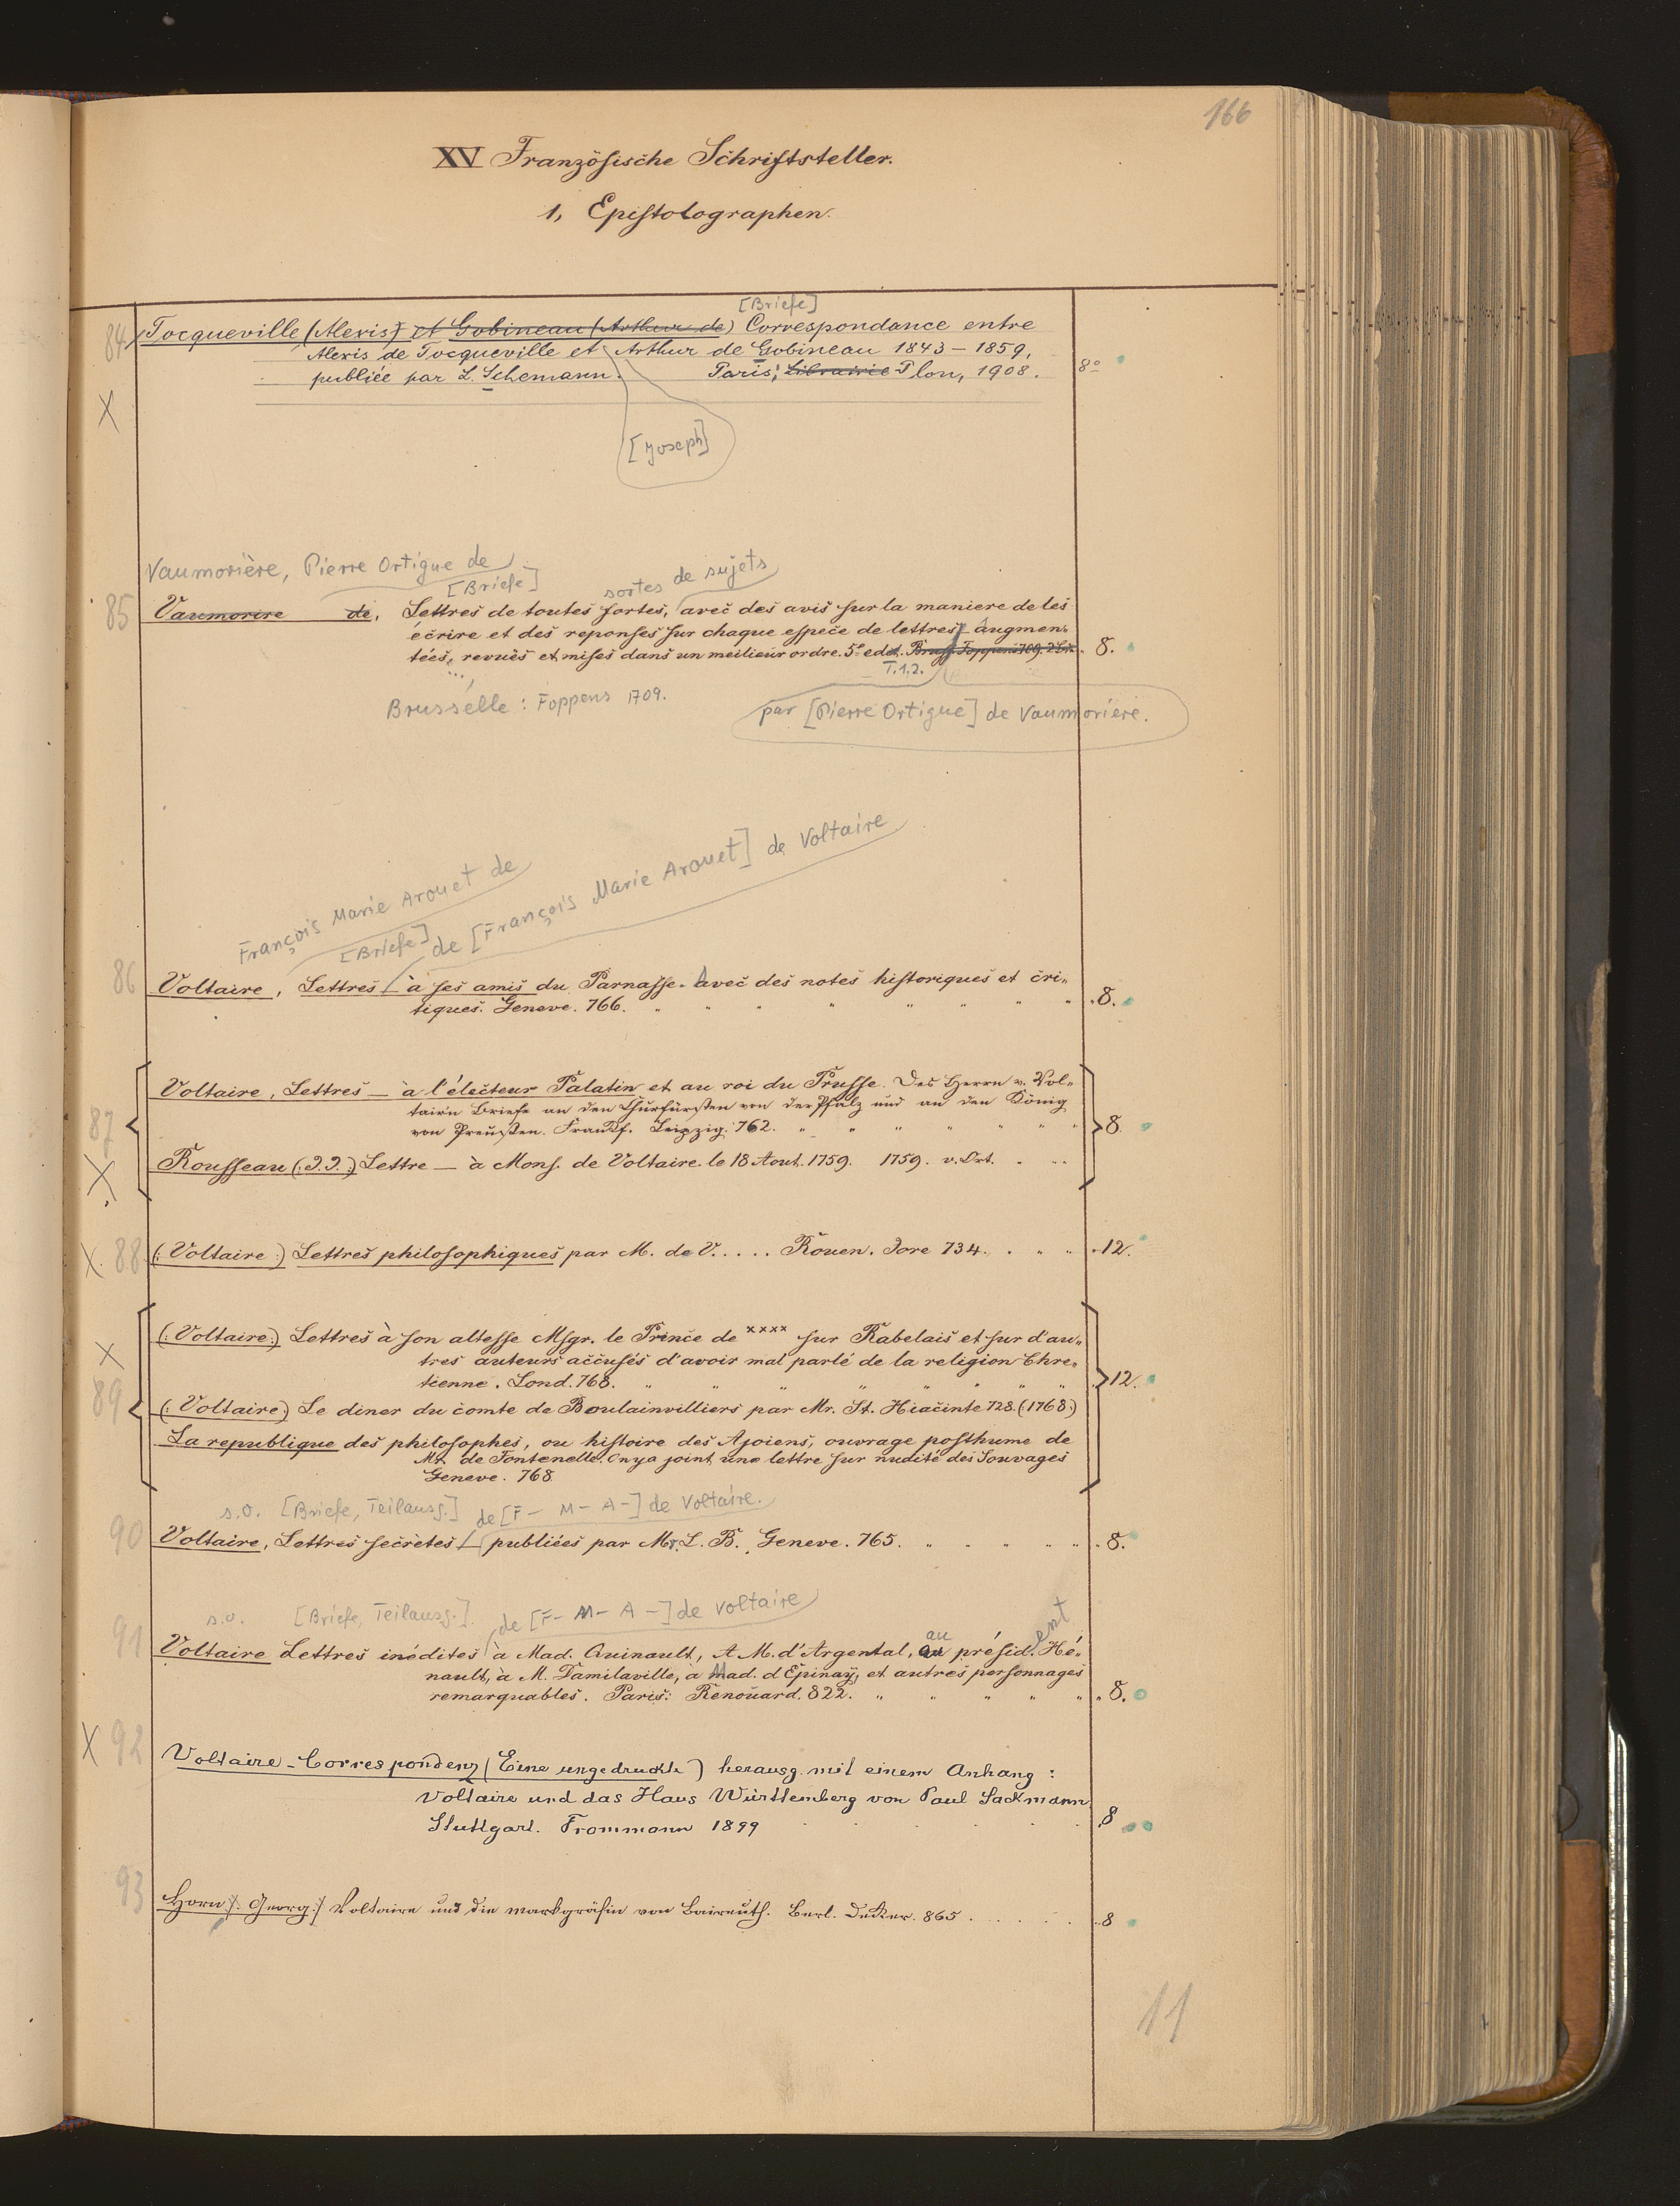 166
XV Französische Schriftsteller.
1, Epistolographen.
[Briefe]
84 Tocqueville (Alexis) et Gobineau (Arthur de) Correspondance entre
Alexis de Tocqueville et Arthur de Gobineau 1843 – 1859,
publiée par L. Schemann. Paris; Librairie Plon, 1908. 8°
X
[Joseph]
Vaumorière, Pierre Ortigue de
[Briefe] sortes de sujets
85 Vaumorire de, Lettres de toutes sortes, avec des avis sur la maniere de les
écrire et des reponses sur chaque espece de lettres, augmen„
tées, revuës et mises dans un meilieur ordre. 5e ed. Bruss. Foppens 709. 8.
T.1.2.
Brusselle: Foppens 1709.
par [Pierre Ortigue] de Vaumorière.
François Marie Arouet de
[Briefe] de [François Marie Arouet] de Voltaire
86 Voltaire, Lettres à ses amis du Parnasse. Avec des notes historiques et cri„
tiques. Geneve. 766. 8.
87 Voltaire, Lettres — à l'électeur Palatin et au roi du Prusse. Des Herrn v. Vol„
tair'n Briefe an den Churfürsten von der Pfalz und an den König
von Preußen. Frankf. Leipzig. 762. 8.
X Rousseau (:J.J.:) Lettre — à Mons. de Voltaire. le 18 Aout. 1759. 1759. v. Ort.
X 88 (: Voltaire :) Lettres philosophiques par M. de V. . . . . Rouen. Jore 734. 12.
X (: Voltaire:) Lettres à son altesse Msgr. le Prince de xxxx sur Rabelais et sur d'au„
tres auteurs accusés d'avoir mal parlé de la religion Chre„
tienne. Lond. 768. 12.
89 (: Voltaire:) Le diner du comte de Boulainvilliers par Mr. St. Hiacinte 728. (1768:)
La republique des philosophes, ou histoire des Ajoiens, ouvrage posthume de
Mr. de Fontenelle. On y a joint une lettre sur nudité des Sauvages
Geneve. 768
s.o. [Briefe, Teilausg.] de [F– M– A–] de Voltaire.
90 Voltaire, Lettres secrètes publiées par Mr. L. B. Geneve. 765. 8.
s.o. [Briefe, Teilausg.] de [F– M– A–] de Voltaire
au ent
91 Voltaire Lettres inédites à Mad. Quinault, A M. d'Argental, au présid. Hé„
nault, à M. Damilaville, à Mad. d Epinaÿ, et autres personnages
remarquables. Paris: Renoüard. 822. 8.
X 92 Voltaire-Correspondenz (Eine ungedruckte) herausg. mit einem Anhang:
Voltaire und das Haus Württemberg von Paul Sackmann
Stuttgart. Frommann 1899 8
93 Horn /: Georg :/ Voltaire und die Markgräfin von Baireuth. Berl. Decker. 865 8
11